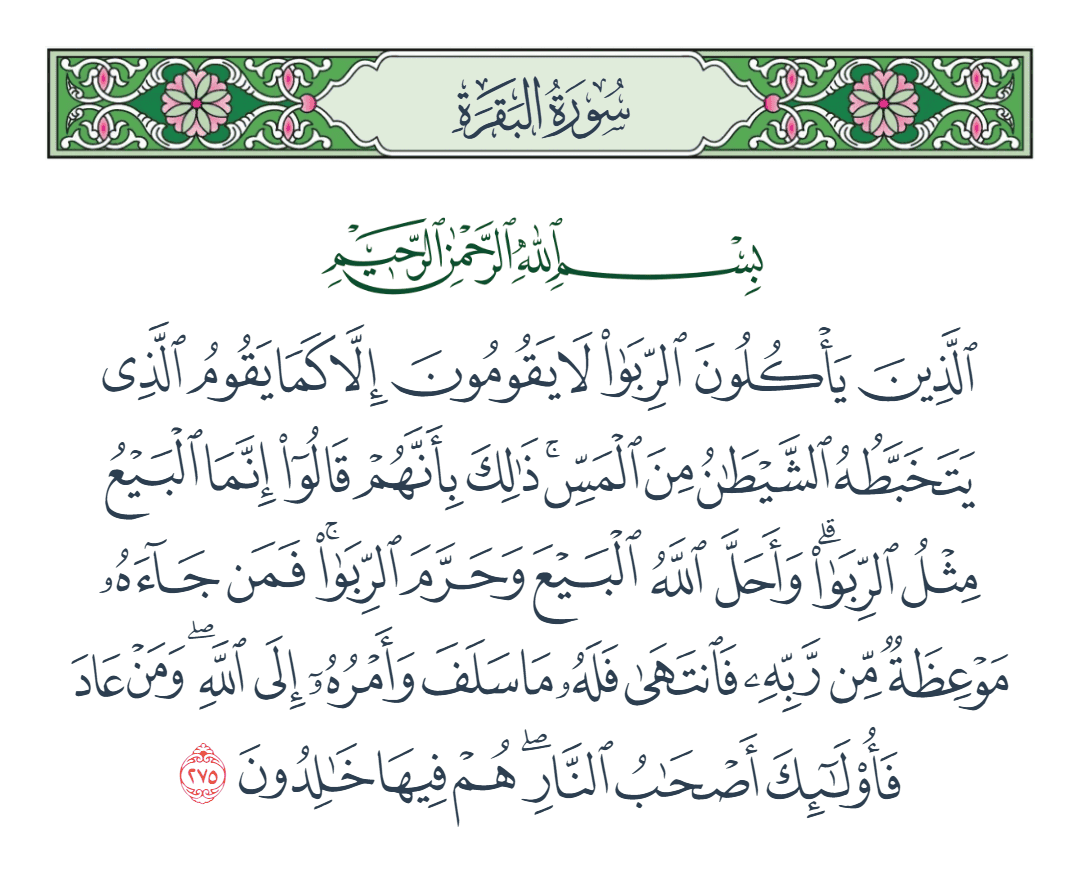 سُورَةُ البَقَرَةِ
بِسْمِ ٱللَّهِ ٱلرَّحْمَٰنِ ٱلرَّحِيمِ
ٱلَّذِينَ يَأْكُلُونَ ٱلرِّبَوٰا۟ لَا يَقُومُونَ إِلَّا كَمَا يَقُومُ ٱلَّذِى
يَتَخَبَّطُهُ ٱلشَّيْطَٰنُ مِنَ ٱلْمَسِّ ۚ ذَٰلِكَ بِأَنَّهُمْ قَالُوٓا۟ إِنَّمَا ٱلْبَيْعُ
مِثْلُ ٱلرِّبَوٰا۟ ۗ وَأَحَلَّ ٱللَّهُ ٱلْبَيْعَ وَحَرَّمَ ٱلرِّبَوٰا۟ ۚ فَمَن جَآءَهُۥ
مَوْعِظَةٌ مِّن رَّبِّهِۦ فَٱنتَهَىٰ فَلَهُۥ مَا سَلَفَ وَأَمْرُهُۥٓ إِلَى ٱللَّهِ ۖ وَمَنْ عَادَ
فَأُو۟لَٰٓئِكَ أَصْحَٰبُ ٱلنَّارِ ۖ هُمْ فِيهَا خَٰلِدُونَ ٢٧٥